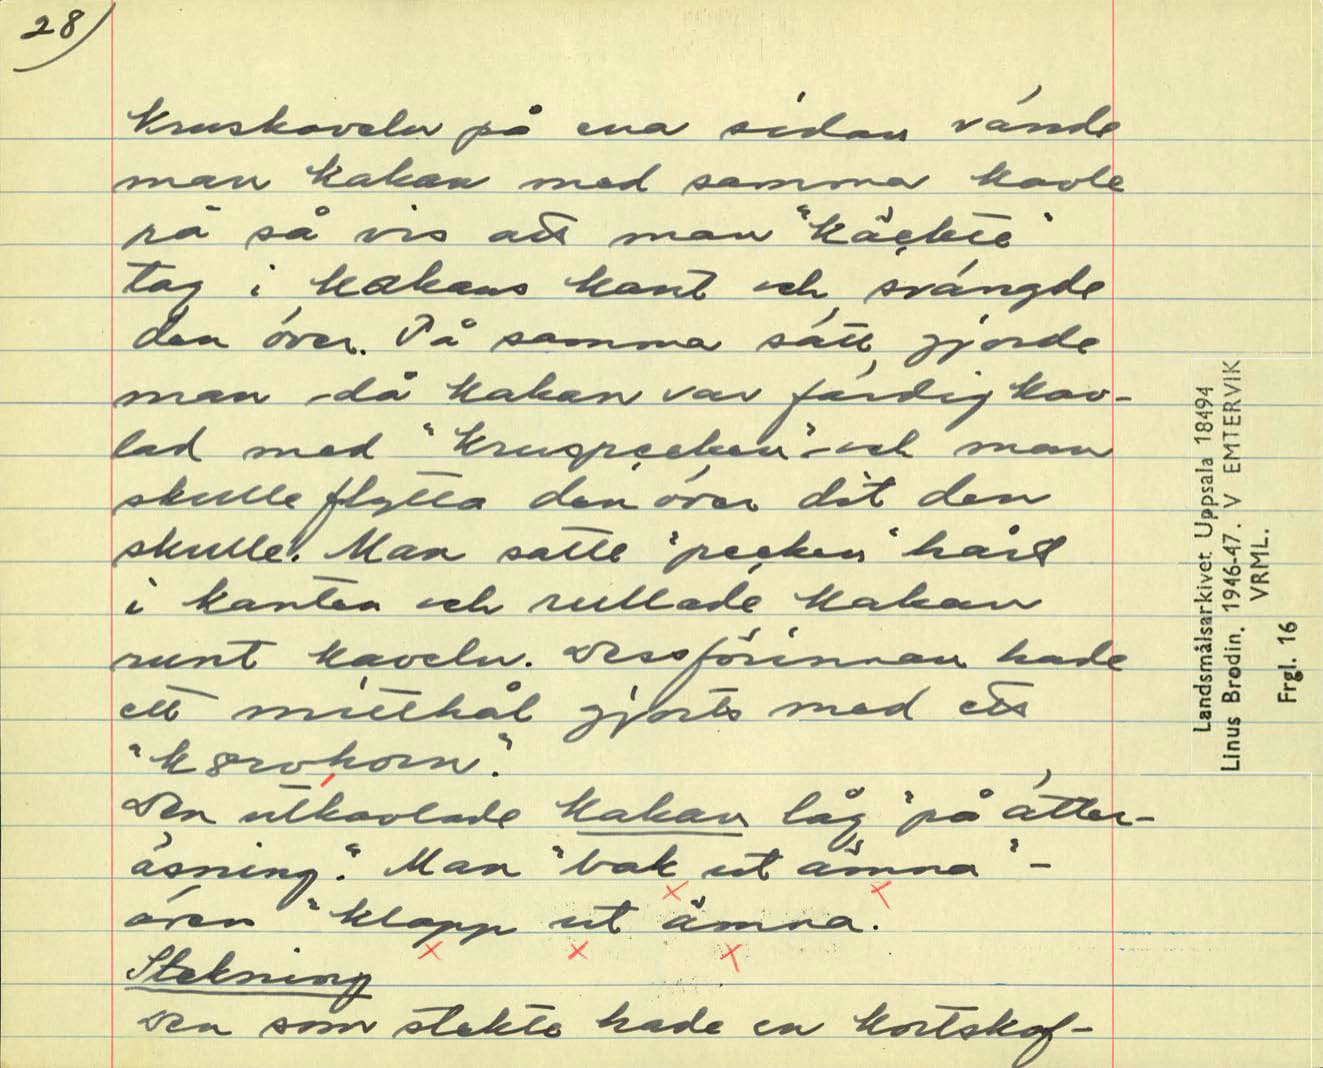 28)
kruskaveln på ena sidan vände
man kakan med samma kavle
på så vis att man "käckte"
tag i kakans kant och svängde
den över. På samma sätt gjorde
man då kakan var färdigkav-
lad med "kruspecken" och man
skulle flytta den över dit den
skulle. Man satte "pecken" hårt
i kanten och rullade kakan
runt kaveln. Dessförinnan hade
ett mitthål gjorts med ett
"körvhorn".
Den utkavlade kakan låg "på åtter-
äsning". Man "bak ut ämna" -
även "klapp ut ämna.
Stekning
Den som stekte hade en kortskaf-
Landsmålsarkivet Uppsala 18494
Linus Brodin. 1946-47. V EMTERVIK
VRML.
Frgl. 16